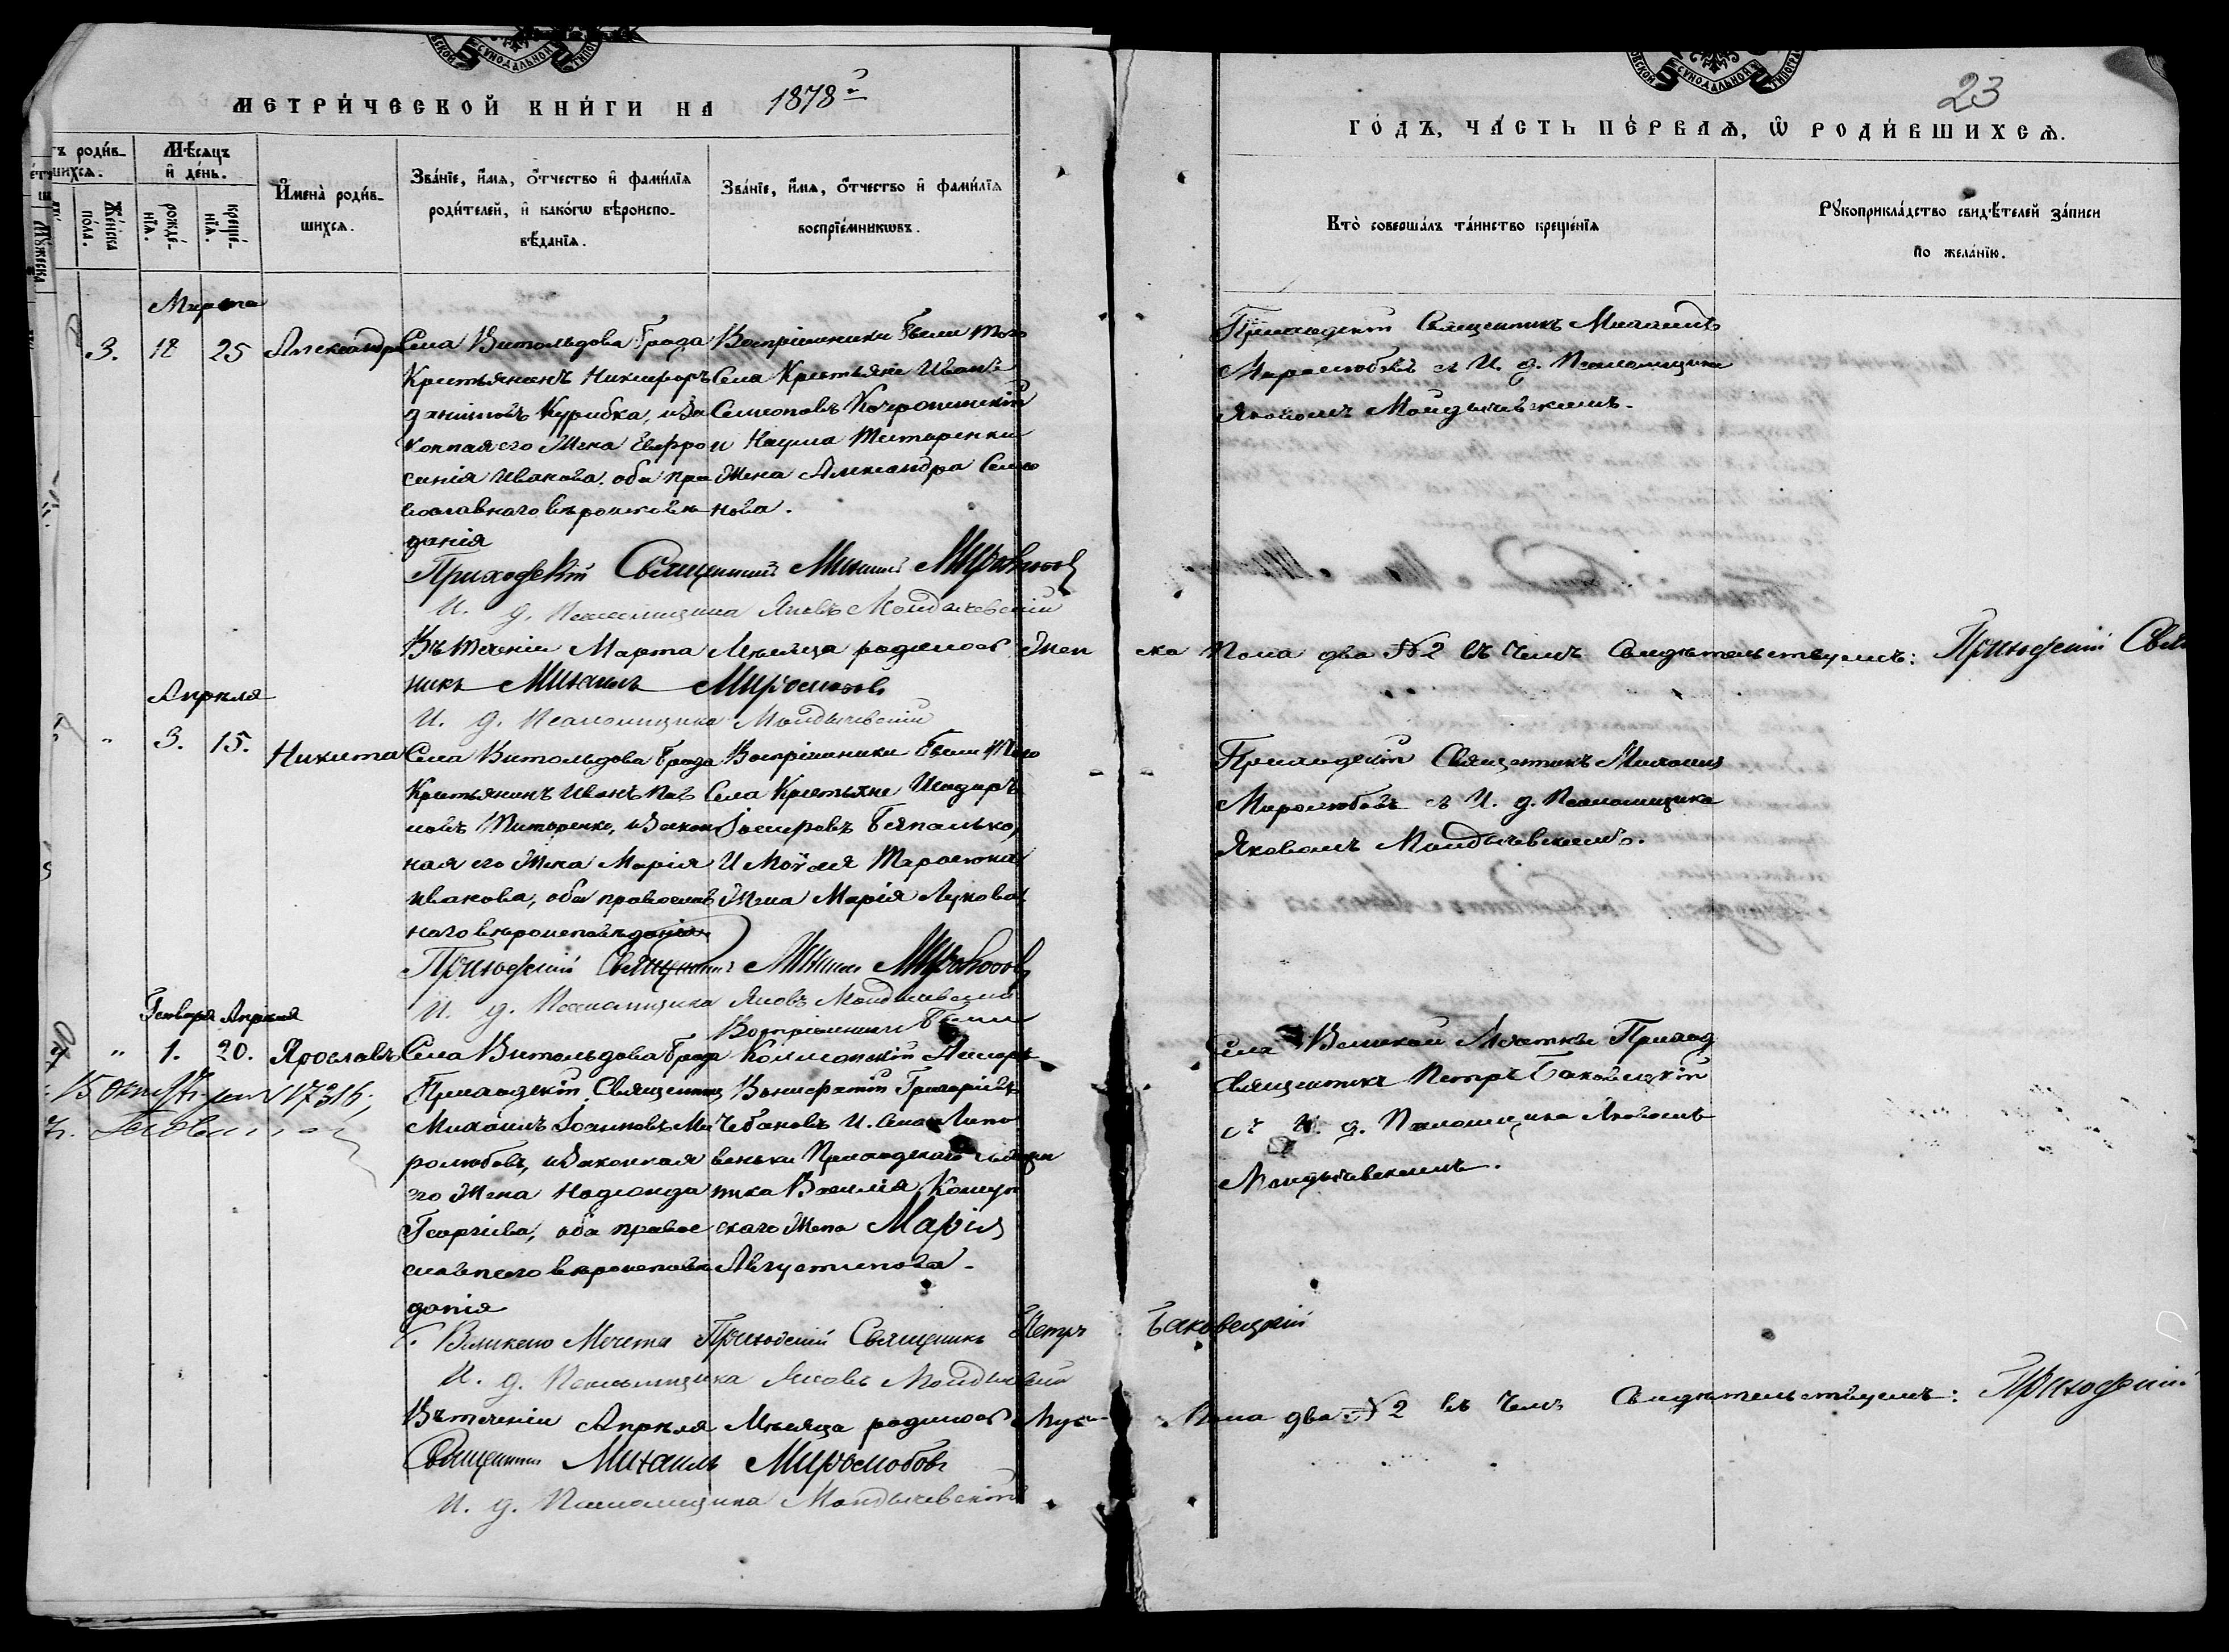 МЕТРИ́ЧЕСКОЙ КНИ́ГИ НА 1878 г.
23
ГО́ДЪ, ЧА́СТЬ ПЕ́РВАѦ, Ѡ҆ РОДИ́ВШИХСѦ.
роди́в-
шихсѧ.
Мѣсѧцъ
и҆ де́нь.
Же́нска по́ла.
рожде́-
нїѧ.
креще́-
нїѧ.
И҆мена̀ роди́в-
шихсѧ.
Зва́нїе, и҆́мѧ, ѻ҆́тчество и҆ фами́лїѧ
роди́телей, и҆ како́гѡ вѣроиспо-
вѣ́данїѧ.
Зва́нїе, и҆́мѧ, ѻ҆́тчество и҆ фами́лїѧ
воспрїе́мникѡвъ.
Кто̀ соверша́лъ та́инство креще́нїѧ
Рꙋкоприкла́дство свидѣ́телей за́писи
по жела́нїю.
Марта
3. 18 25 Александра
Села Витольдова Брода
Крестьянинъ Никифоръ
Даниловъ Курибка, и За
конная его Жена Евфро
синія Иванова. оба пра
вославного вѣроисповѣ
данія
Воспріемники были того
Села Крестьяне Иванъ
Семеоновъ
и Наума Титаренки
Жена Александра Семео
нова.
Приходскій Священникъ Михаилъ
Миролюбовъ съ И. д. Псаломщика
Яковомъ Мондычевскимъ.
Приходскій Священникъ Михаилъ Миролюбовъ
И. д. Псаломщика Яковъ Мондычевскій
Въ теченіи Марта Мѣсяца родилось Жен ска Пола два №2 въ чемъ Свидѣтельствуемъ: Приходскій Свящ
никъ Михаилъ Миролюбовъ
И. д. Псаломщика Мондычевскій
Апрѣля
" 3. 15. Никита
Села Витольдова Брода
Крестьянинъ Иванъ Пав
ловъ Титаренко, и Закон
ная его Жена Марія
Иванова, оба православ
наго вѣроисповѣданія
Воспріемники были того
Села Крестьяне Исидоръ
И Моѵсея Тарасюка
Жена Марія Лукова
Приходскій Священникъ Михаилъ
Миролюбовъ съ И. д. Псаломщика
Яковомъ Мондычевскимъ.
Приходскій Священникъ Михаилъ Миролюбовъ
И. д. Псаломщика Яковъ Мондычевскій
Генваря Апрѣля
" 1. 20. Ярославъ
Села Витольдова Брода
Приходскій Священникъ
Михаилъ Іоанновъ Ми
ролюбовъ, и Законная
его Жена Надежда
Георгіева, оба правос
лавнаго вѣроисповѣ
данія
Воспріемники были
Вонифатій Григоріевъ
Чебановъ И. Села Липо
веньки Приходскаго Священ
ника Василія
скаго Жена Марія
Августинова.
Села Великой Мечетки Приход
Священникъ Петръ Баковецкій
съ И. д. Псаломщика Яковомъ
Мондычевскимъ.
С. Великой Мечетки Приходскій Священникъ Петръ Баковецкій
И. д. Псаломщика Яковъ Мондычевскій
Въ теченіи Апрѣля Мѣсяца родилось Муж Пола два №2 въ чемъ Свидѣтельствуемъ: Приходскій
Священникъ Михаилъ Миролюбовъ
И. д. Псаломщика Мондычевскій